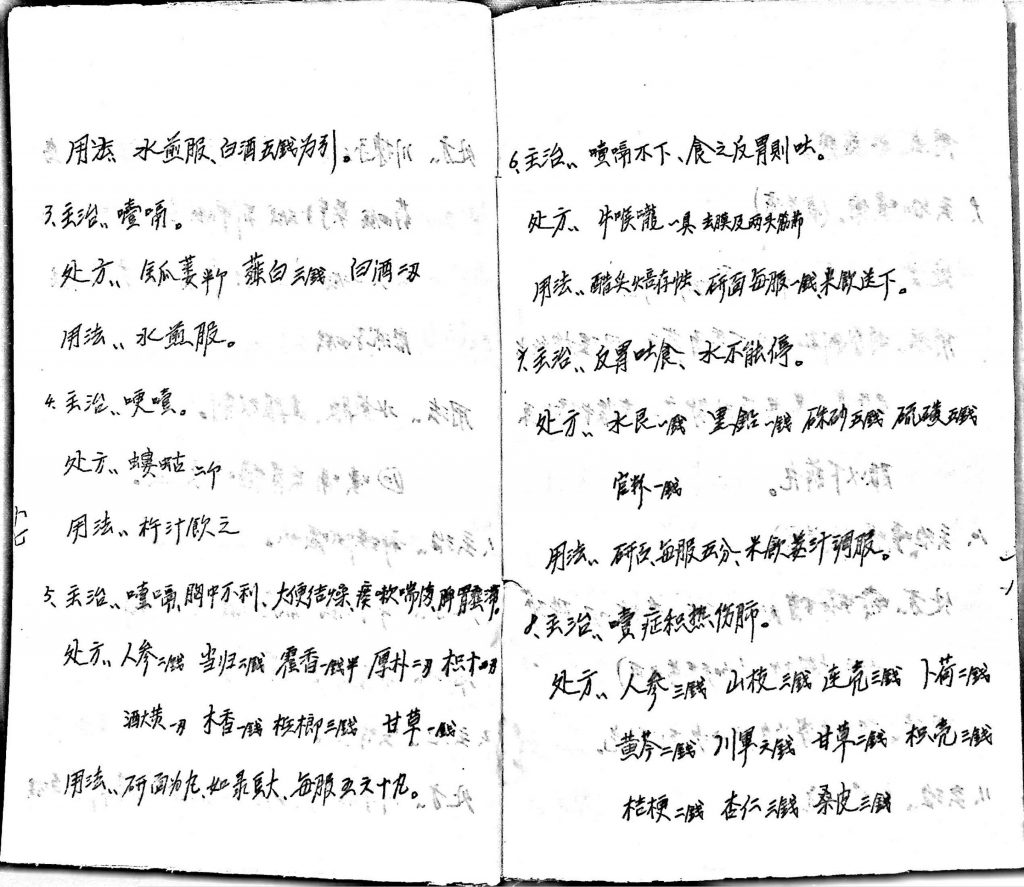 用法、水煎服、白酒五錢为引。
3、主治、噎嗝。
处方、瓜蒌半个 薤白三錢 白酒二刃
用法、水煎服。
4、主治、哽噎。
处方、螻蛄二个
用法、杵汁飲之
5、主治、噎嗝、胸中不利、大便结燥、痰嗽喘满、脾胃壅滞。
处方、人参二錢 当归二錢 藿香一錢半 厚朴二刃 枳十四刃
酒大黄一刃 木香一錢 梹榔三錢 甘草一錢
用法、研面为丸、如菉豆大、每服五六十丸。
6、主治、噎嗝不下、食之反胃則吐。
处方、牛喉嚨一具 去膜及两头節
用法、醋炙焙存性、研面每服一錢、米飲送下。
7、主治、反胃吐食、水不能停。
处方、水艮一錢 黑鉛一錢 硃砂五錢 硫磺五錢
官粉一錢
用法、研、每服五分、米飲姜汁調服。
8、主治、噎症积热伤肺。
处方、人参三錢 山枝三錢 连壳三錢 卜荷二錢
黄芩二錢 川軍六錢 甘草二錢 枳壳三錢
桔梗二錢 杏仁三錢 桑皮三錢